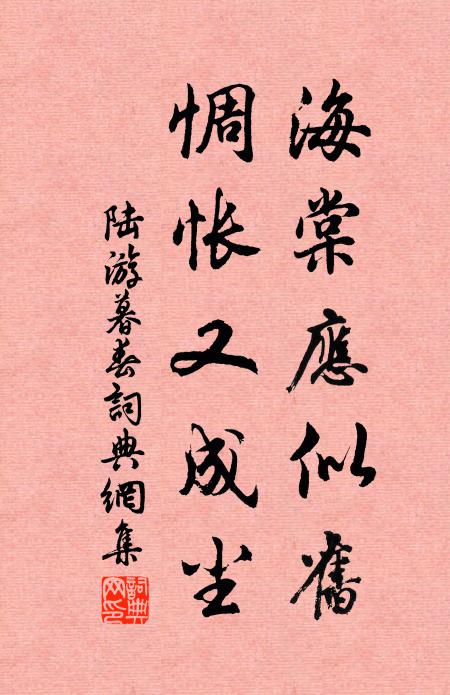 海棠應似舊
惆怅又成尘
陆游暮春詞典網集
詞典网印